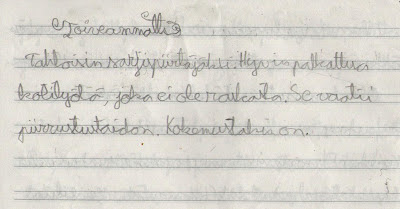 Toiveammatti
Tahtoisin piirtäjäksi. Hyvin palkattua
kotityötä, joka ei ole raskasta. Se vaatii
piirrustustaidon. Kokemustakin on.